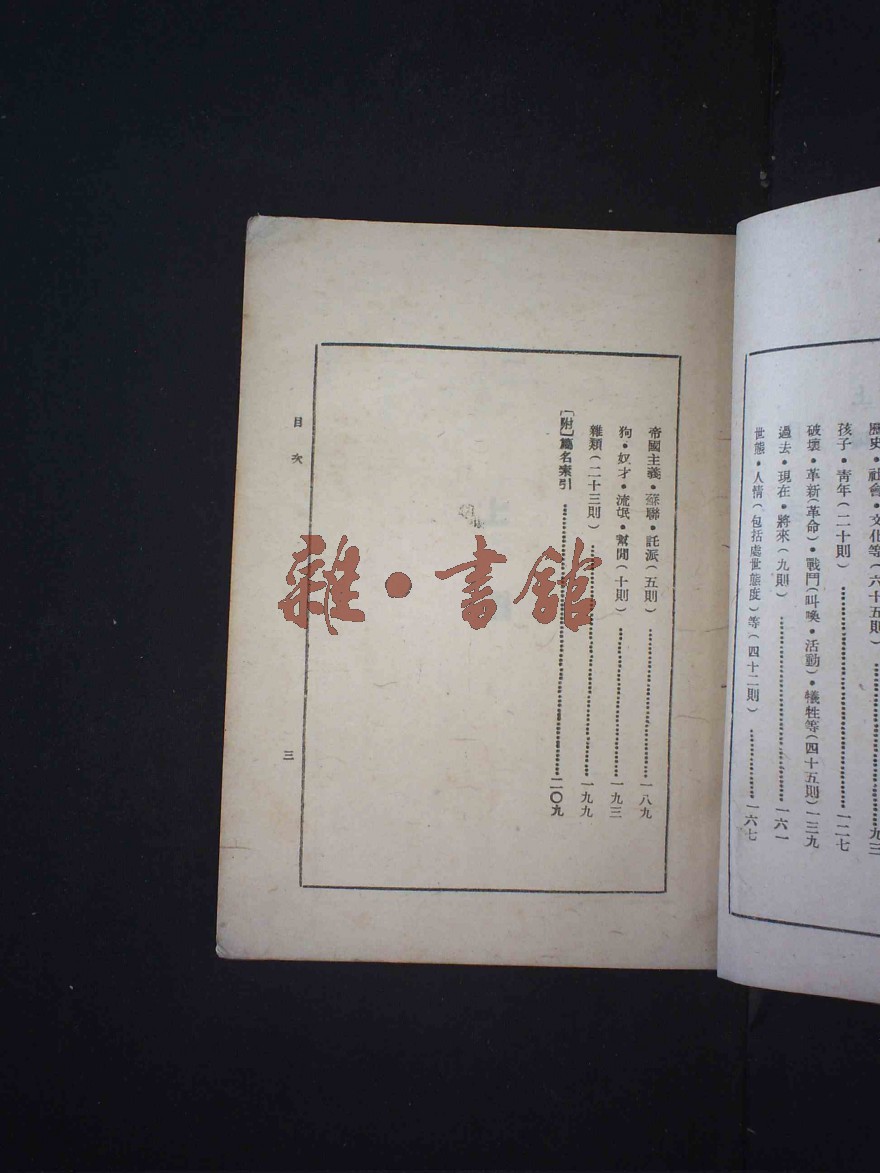 歷史・社會・文化等(六十五則)……九三
孩子・青年(二十則)……一二七
破壞・革新(革命)・戰鬥(叫喚・活動)・犧牲等(四十五則)一三九
過去・現在・將來(九則)……一六一
世態・人情(包括處世態度)等(四十二則)……一六七
帝國主義・蘇聯・託派(五則)……一八九
狗・奴才・流氓・幫閒(十則)……一九三
雜類(二十三則)……一九九
[附]篇名索引……二〇九
目次
三
雜・書館